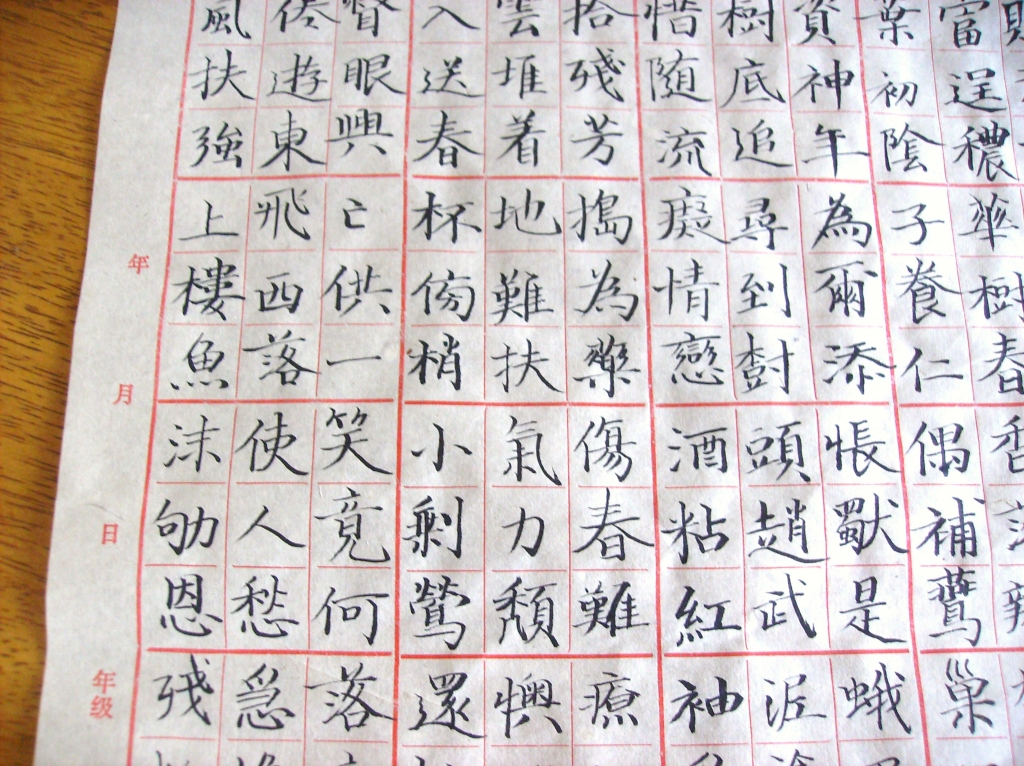 富逞穠華樹春香
葉初陰子養仁偶補鷰巢
資神年為爾添悵是蛾
樹底追尋到樹頭趙武泥
惜随流癡情戀酒粘紅袖
拾殘芳搗為藥傷春難療
雲堆着地難扶氣力頹懊
入送春杯傍梢小剩鶯還
瞥眼興亡供一笑竟何落
倦遊東飛西落使人愁急
風扶強上樓魚沫劬恩残
年 月 日 年级